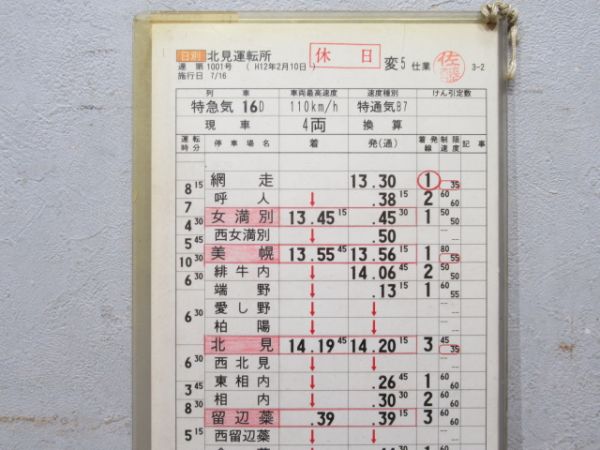 日別 北見運転所 休日 変5 仕業 佐
達 第1001号 ( H12年2月10日 ) 3-2
施行日 7/16
列車 車両最高速度 速度種別 けん引定数
特急気 16D 110km/h 特通気B7
現車 4両 換算
運転時分 停車場名 着 発(通) 着発線 制限速度 記事
網走 13.30 1 35
8 15
呼人 ↓ .38 15 2 60 60
7
女満別 13.45 15 .45 30 1 50 50
4 30
西女満別 ↓ .50
5 45
美幌 13.55 45 13.56 15 1 80 55
10 30
緋牛内 ↓ 14.06 45 2 50 50
6 30
端野 ↓ .13 15 1 60 55
愛し野 ↓ ↓
6 30
柏陽 ↓ ↓
北見 14.19 45 14.20 15 3 45 35
西北見 ↓ ↓
6 30
東相内 ↓ .26 45 1 60 60
3 45
相内 ↓ .30 30 2 60 60
8 30
留辺蘂 .39 .39 15 3 60 60
5 15
西留辺蘂 ↓ ↓